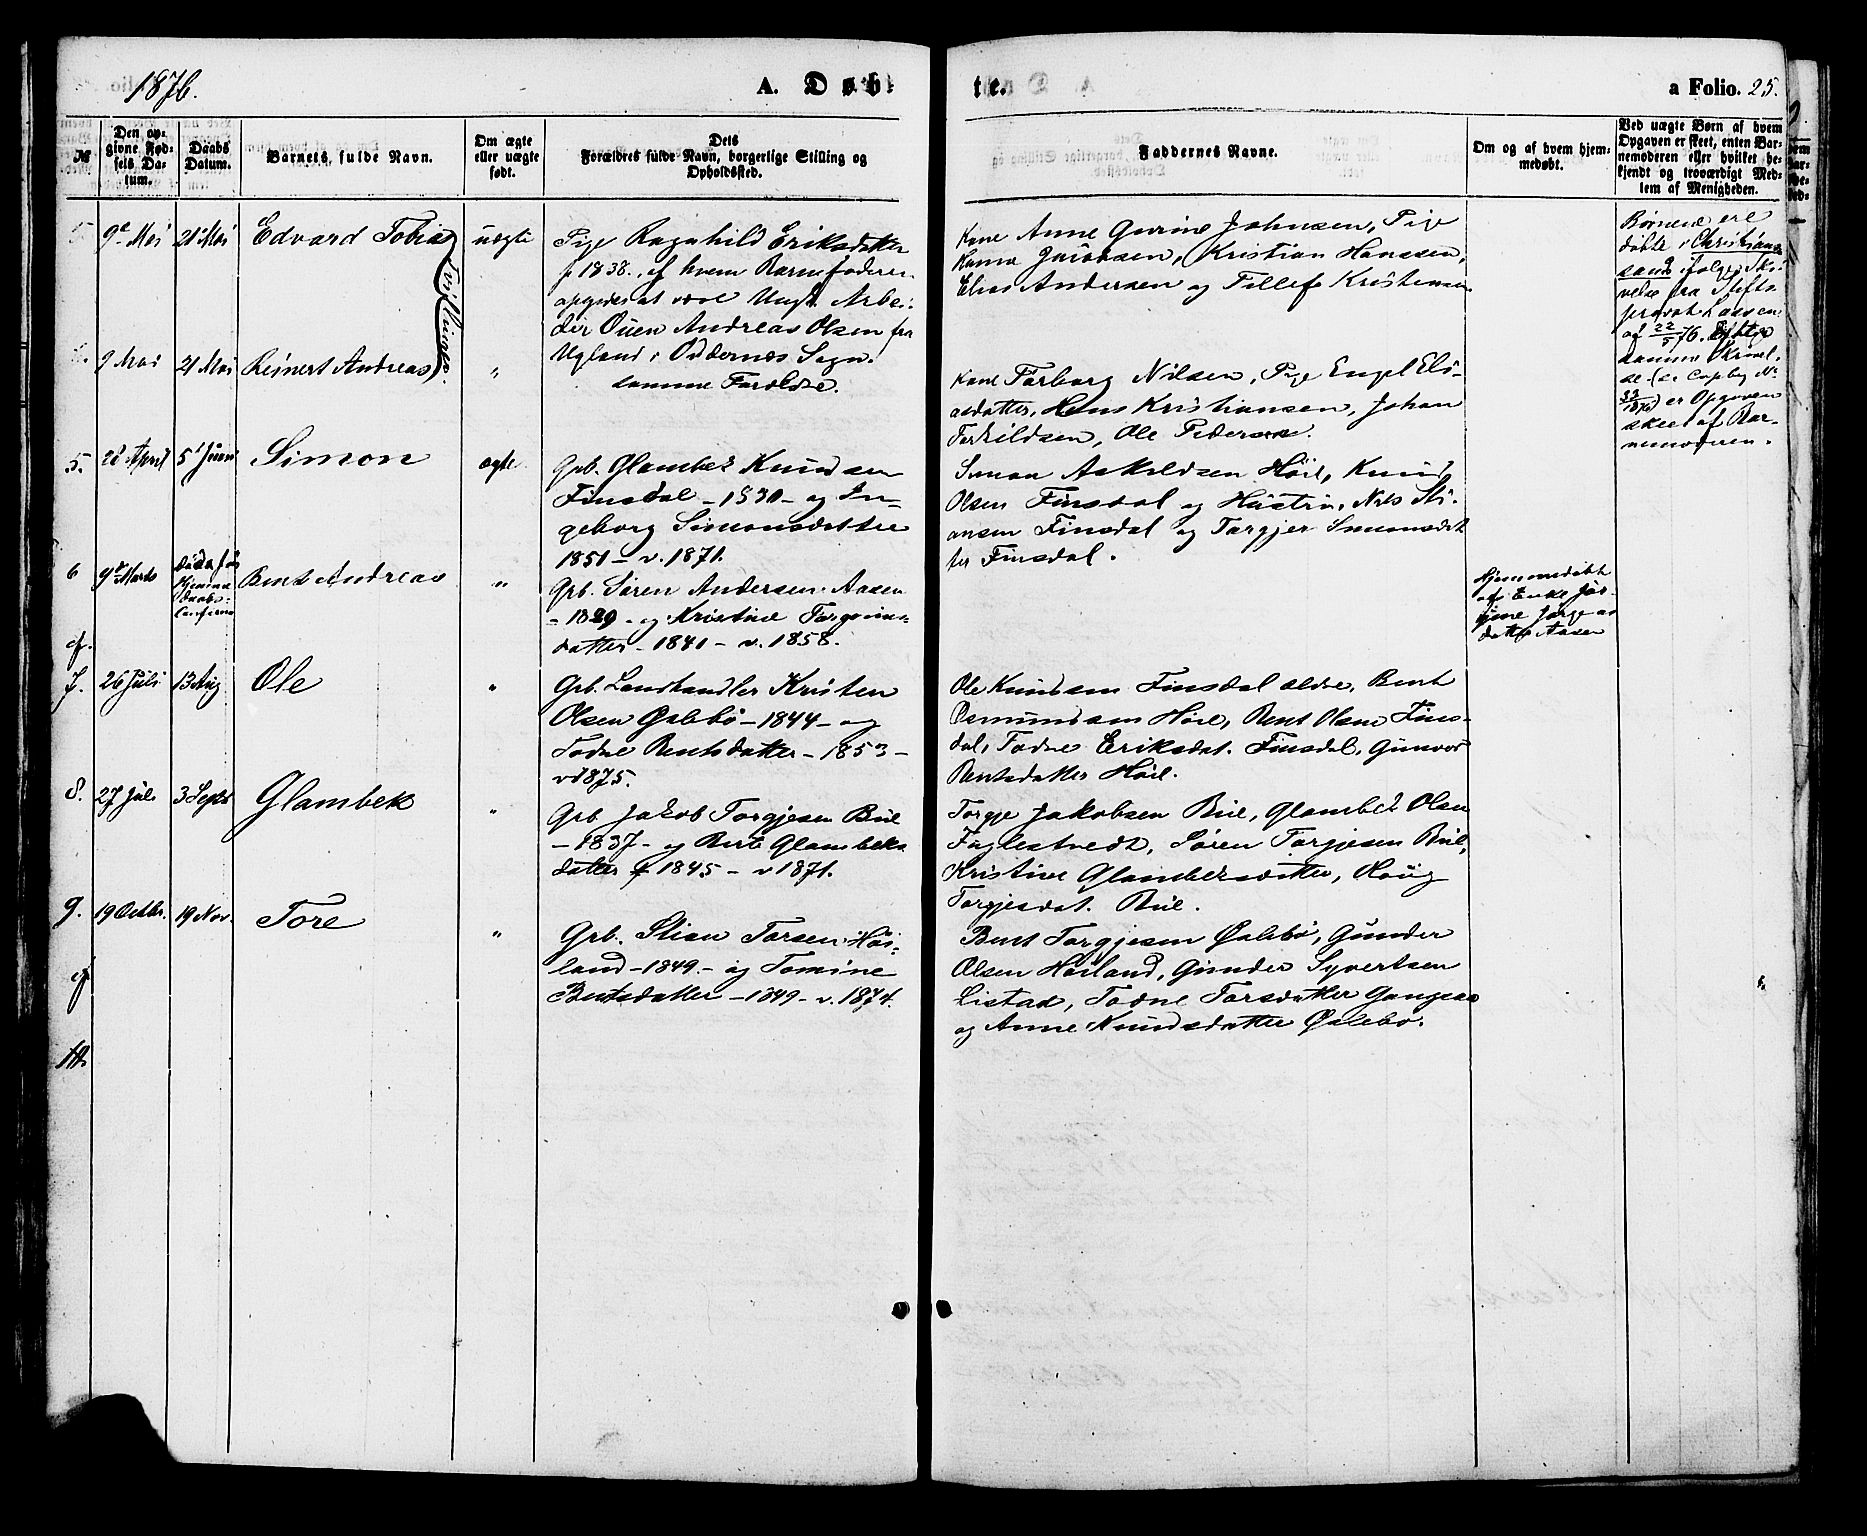 1876.
A. Døbte.
a Folio. 25.
№
Den opgivne Fødsels Datum.
Daabs Datum.
Barnets, fulde Navn.
Om ægte eller uægte født.
Dets Forældres fulde Navn, borgerlige Stilling og Opholdssted.
Faddernes Navne.
Om og af hvem hjemmedøbt.
Ved uægte Børn af hvem Opgaven er skeet, enten Barnemoderen eller hvilket bekjendt og troværdigt Medlem af Menigheden.
9de Mai
21 Mai
Edvard Tobias
Tvillinger.
uægte
Pige Ragnhild Eriksdatter
f 1838., af hvem Barnefaderen
opgives at være Ungk. Arbei-
der Ouen Andreas Olsen fra
Ugland i Oddernes Sogn.
Kone Anne Gurine Johnsen, Pige
Kanna Jacobsen, Kristian Hanssen,
Elias Andersen og Tellef Kristensen
Børnene ere
døbte i Christians
sand ifølge Skri
velse fra Stifts
provst Lassen
af 22/5 76. Ifølge
samme Skrivel
se (se Copibog No
33/1876) er Opgaven
skeet af Bar-
nemoderen.
9 Mai
21 Mai
Reinert Andreas
"
samme Forældre.
Kone Torborg Nilsen, Pige Engel Eli-
asdatter, Hans Kristiansen, Johan
Terkildsen, Ole Pedersen.
5.
28 April
5' Juni
Simon
ægte
Grb. Glambek Knudsen
Finsdal - 1830 - og In-
geborg Simonsdatter
1851 - v. 1871.
Simon Askildsen Höie, Knud
Olsen Finsdal og Hustru, Nils Sti-
ansen Finsdal og Torgjer Simonsdat
ter Finsdal.
6
9de Marts
Døde før
Hjemme
daabs-
Confirma
Bent Andreas
"
Grb. Sören Andersen Aasen
- 1829 - og Kristine Torgrims-
datter - 1841 - v. 1858.
Hjemmedöbt
af Enke Jör-
gine Jörgens
datter Aasen
cf.
7.
26 Juli
13 Aug
Ole
"
Grb. Landhandler Kristen
Olsen Øslebö - 1844 - og
Todne Bentsdatter - 1853 -
v 1875.
Ole Knudsen Finsdal ældre, Bent
Osmundsen Höie, Bent Olsen Fins-
dal, Todne Eriksdat. Finsdal, Gunvor
Bentsdatter Höie.
8.
27 Juli
3 Septr
Glambek
"
Grb Jakob Torgjesen Bue
- 1837 - og Berte Glambeks
datter f 1845 - v 1871.
Torgje Jakobsen Bue, Glambek Olsen
Fuglestvedt, Sören Torgjesen Bue,
Kristine Glambeksdatter,
Torgjesdat. Bue.
9.
19 Octbr.
19 Nov.
Tore
"
Grb. Stian Torsen Höi-
land - 1849. - og Tomine
Bentsdatter - 1849 - v. 1874.
Bent Torgjesen Øslebö, Gunder
Olsen Höiland, Gunder Syvertsen
Listad, Todne Torsdatter Gangsaa
og Anne Knudsdatter Øslebö.
cf
10.